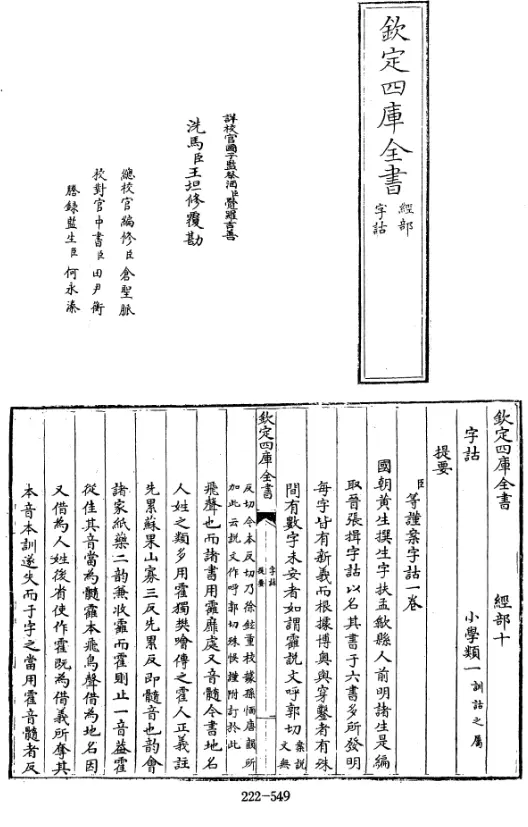 欽定四庫全書
經部
字詁
詳校官國子監祭酒臣覺羅吉善
洗馬臣王坦修覆勘
總校官編修臣倉聖脈
校對官中書臣田尹衡
謄錄監生臣何永溱
欽定四庫全書
經部十
字詁
小學類一訓詁之屬
提要
臣等謹案字詁一卷
國朝黃生撰生字扶孟歙縣人前明諸生是編
取晉張揖字詁以名其書于六書多所發明
每字皆有新義而根據博奧與穿鑿者有殊
間有數字未安者如謂靃說文呼郭切案說
文無
欽定四庫全書
字詁
提要
一
反切今本反切乃徐鉉重校據孫愐唐韻所
加此云說文作呼郭切殊悞謹附訂於此
飛聲也而諸書用靃靡處又音髓今書地名
人姓之類多用霍獨樊噲傳之霍人正義註
先累蘇果山寡三反先累反即髓音也韵會
諸家紙藥二韵兼收靃而霍則止一音葢霍
從隹其音當為髓靃本飛鳥聲借為地名因
又借為人姓後省使作霍既為借義所奪其
本音本訓遂失而于字之當用霍音髓者反
222-549